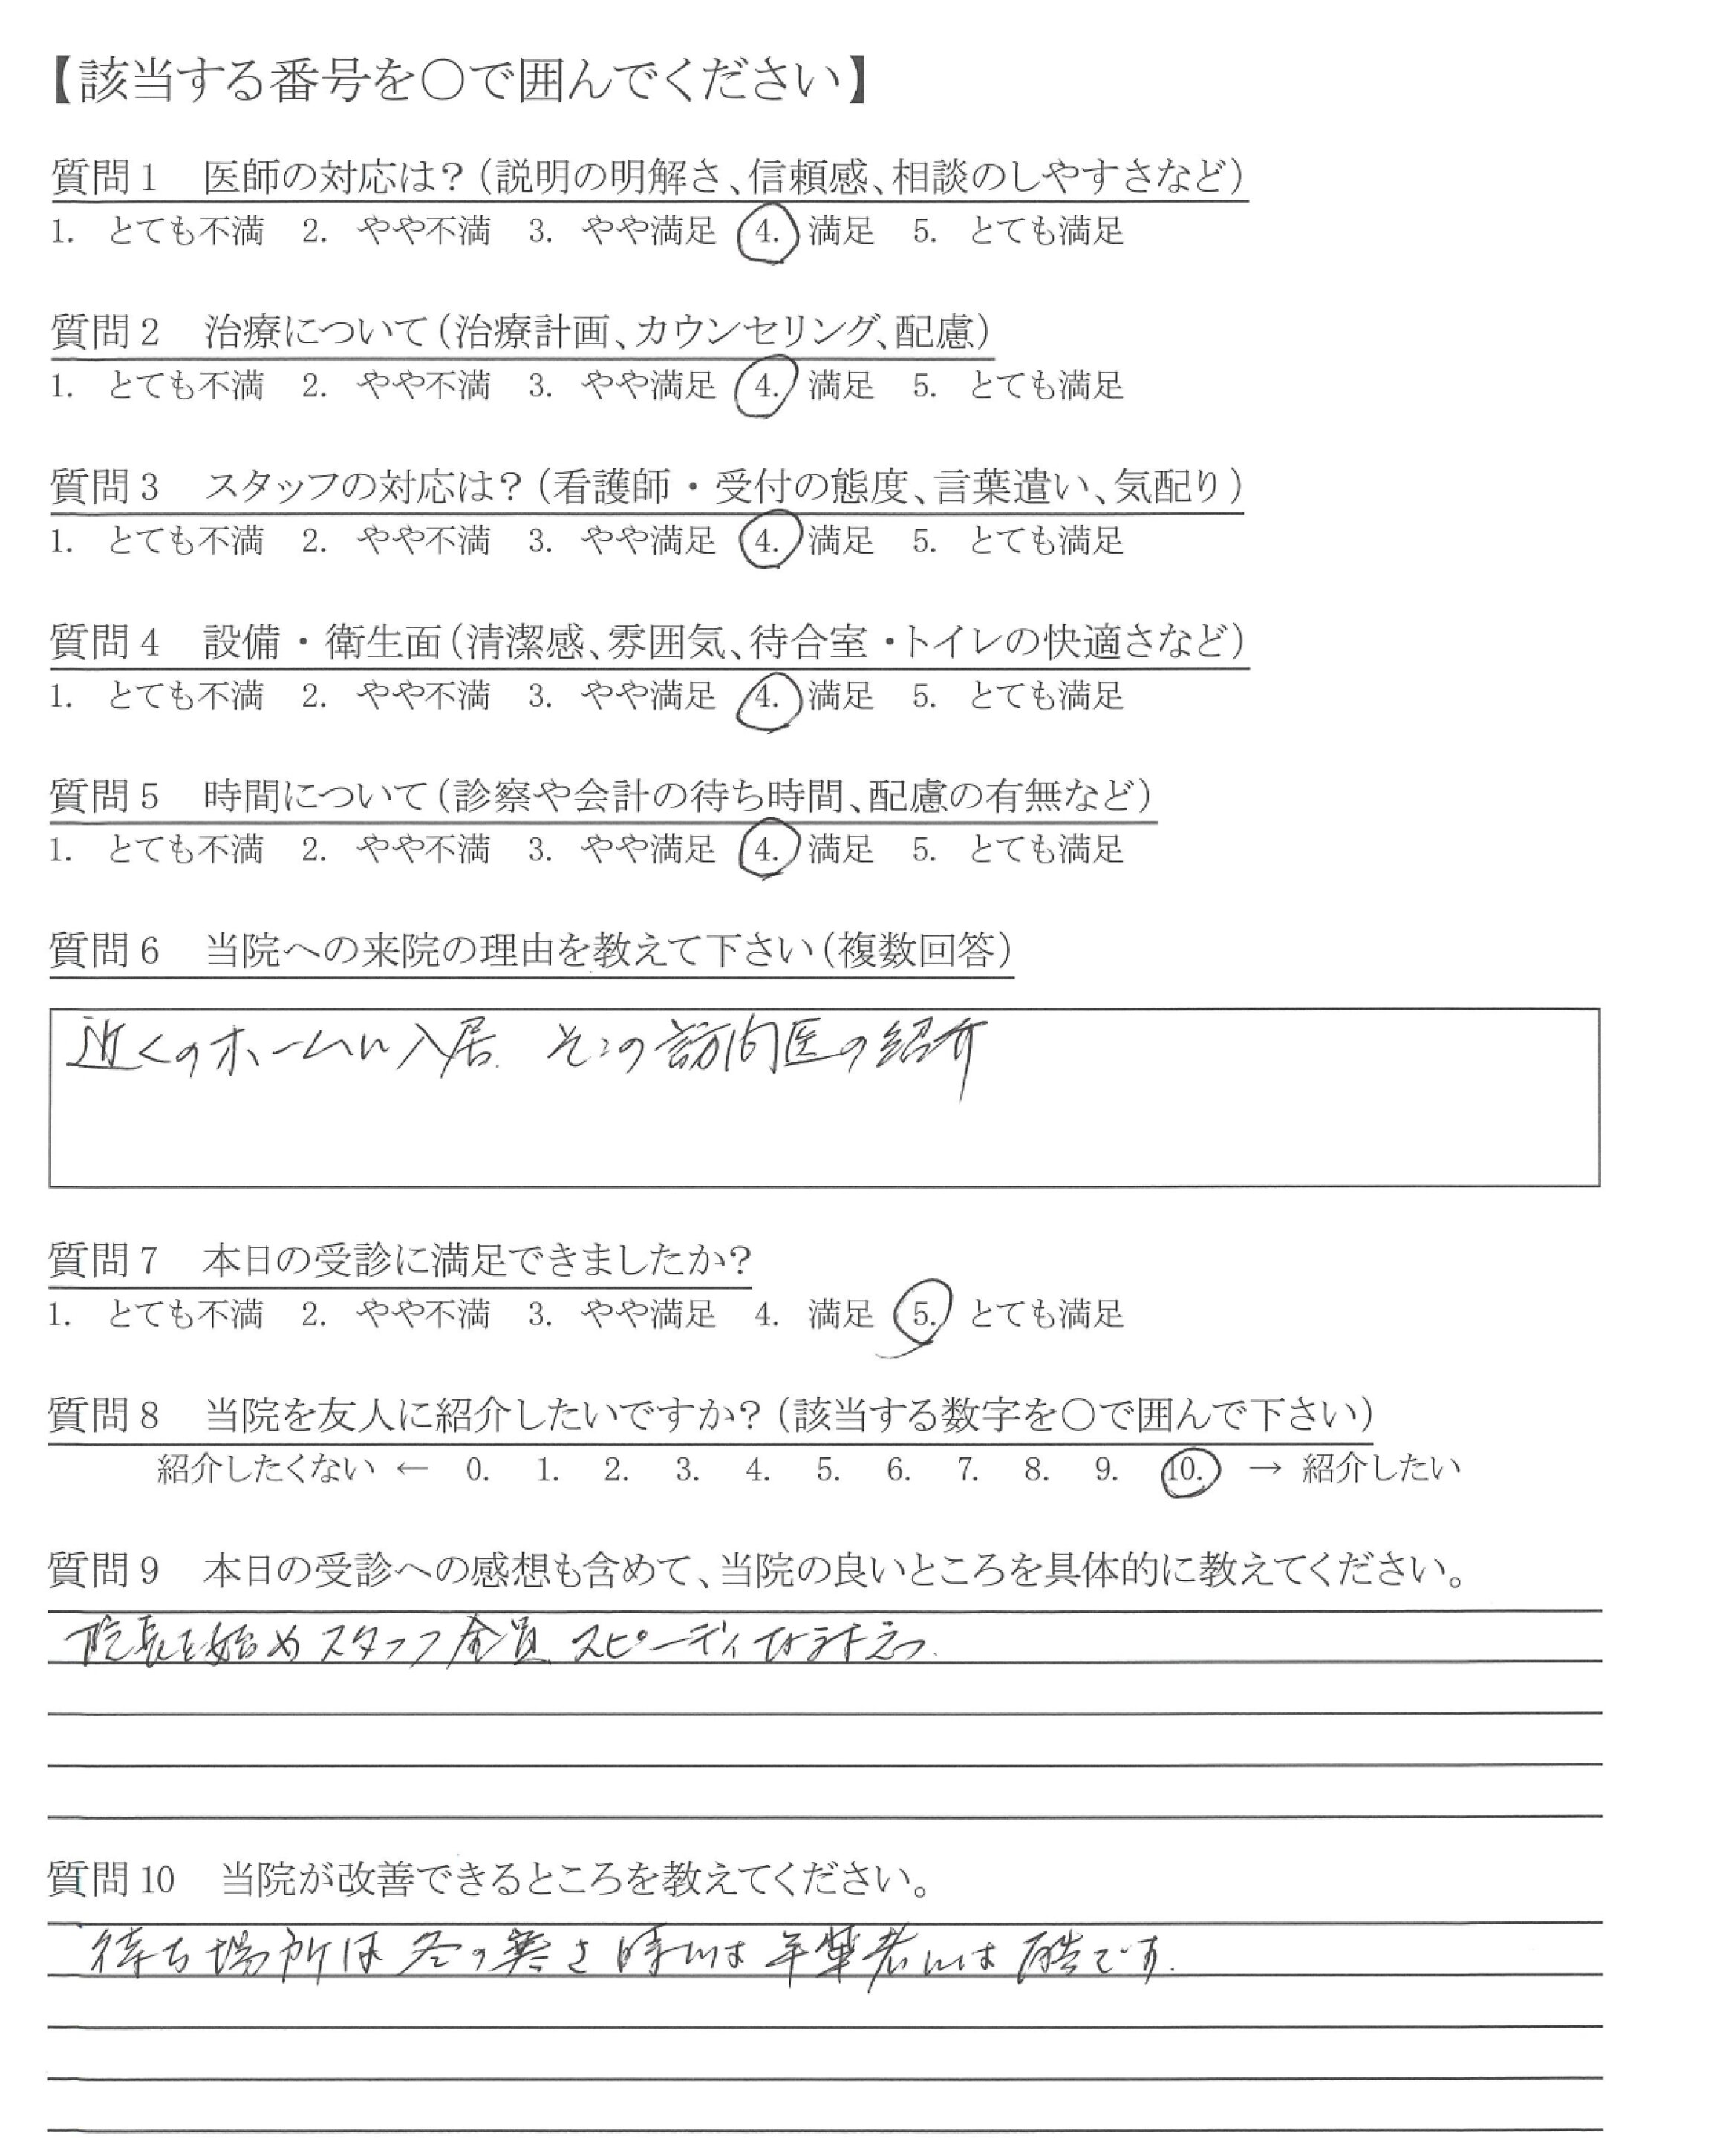 【該当する番号を○で囲んでください】
質問1 医師の対応は?(説明の明解さ、信頼感、相談のしやすさなど)
1. とても不満 2. やや不満 3. やや満足 4. 満足 5. とても満足
質問2 治療について(治療計画、カウンセリング、配慮)
1. とても不満 2. やや不満 3. やや満足 4. 満足 5. とても満足
質問3 スタッフの対応は?(看護師・受付の態度、言葉遣い、気配り)
1. とても不満 2. やや不満 3. やや満足 4. 満足 5. とても満足
質問4 設備・衛生面(清潔感、雰囲気、待合室・トイレの快適さなど)
1. とても不満 2. やや不満 3. やや満足 4. 満足 5. とても満足
質問5 時間について(診察や会計の待ち時間、配慮の有無など)
1. とても不満 2. やや不満 3. やや満足 4. 満足 5. とても満足
質問6 当院への来院の理由を教えて下さい(複数回答)
近くのホームに入居. そこの訪問医の紹介
質問7 本日の受診に満足できましたか?
1. とても不満 2. やや不満 3. やや満足 4. 満足 5. とても満足
質問8 当院を友人に紹介したいですか?(該当する数字を○で囲んで下さい)
紹介したくない ← 0. 1. 2. 3. 4. 5. 6. 7. 8. 9. 10. → 紹介したい
質問9 本日の受診への感想も含めて、当院の良いところを具体的に教えてください。
院長を始めスタッフ全員スピーディな対応.
質問10 当院が改善できるところを教えてください。
待ち場所は冬の寒さ時には年輩者には酷です.